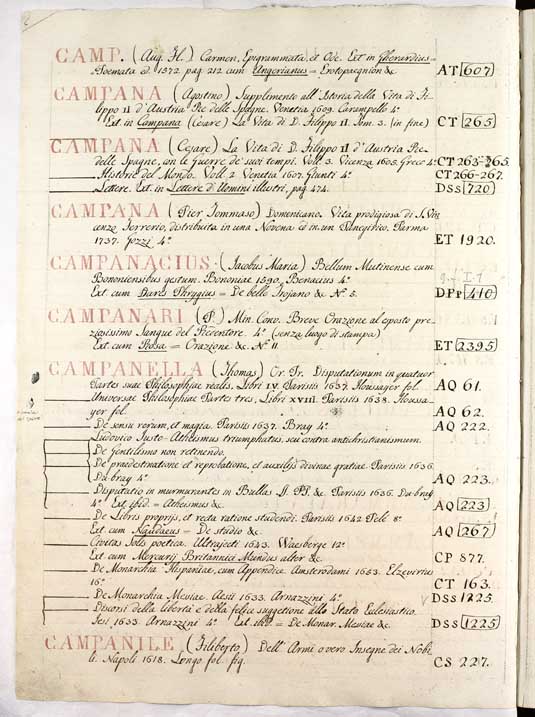 CAMP. (Aug. H.) Carmen, Epigrammata, et Ode. Ext in Gherardius=
Poemata ed. 1572 pag 212 cum Ungerianus = Erotopaegnion &c. AT 607
CAMPANA (Agostino) Supplimento all'Istoria della Vita di Fi-
lippo II d'Austria Re delle Spagne. Venetia 1609. Carampello 4º
Ext in Campana (Cesare) La Vita di D. Filippo II. Tom. 3. (in fine) CT 265
CAMPANA (Cesare) La Vita di D. Filippo II d'Austria Re
delle Spagne, con le Guerre de suoi tempi. Voll. 3. Vicenza 1605. Greco 4º CT 263-265.
Historie del Mondo. Voll. 2 Venetia 1607. Giunti 4º CT 266-267.
Lettere. Ext. in Lettere d'Uomini illustri, pag 474. DSS 720
CAMPANA (Pier Tommaso) Domenicano. Vita prodigiosa di S. Vin
cenzo Ferrerio, distribuita in una Novena ed in un Panegirico. Parma
1737. Gozzi 4º ET 1920.
CAMPANACIUS (Jacobus Maria) Bellum Mutinense cum
Bononiensibus gestum. Bononiae 1590. Benacius 4º
Ext cum Dares Phrygius = De bello Trojano &c. Nº 5. DPP 410
CAMPANARI (P.) Min. Conv. Breve Orazione al esposto pre-
ziosissimo Sangue del Redentore. 4º (senza luogo di stampa)
Ext cum Rosa = Orazione &c. Nº 11 ET 2395
CAMPANELLA (Thomas) Or. Pr. Disputationum in quatuor
Partes suae Philosophiae realis, Libri IV. Parisiis 1637. Houssayer fol. AQ 61.
Universae Philosophiae Partes tres, Libri XVIII. Parisiis 1638. Houssa-
yer fol. AQ 62.
De sensu rerum, et magia. Parisiis 1637. Bray 4º AQ 222.
Ludovico Justo Atheismus triumphatus, seu contra antichristianismum.
De Gentilismo non retinendo.
De praedestinatione et reprobatione, et auxilijs divinae gratiae. Parisiis 1636.
Du-bray 4º AQ 223.
Disputatio in murmurantes in Bullas SS. PP. &c. Parisiis 1636. Du-bray
4º Ext ibid = Atheismus &c. AQ 223
De Libris proprijs, et recta ratione studendi. Parisiis 1642 Pelé 8º
Ext cum Naudaeus = De studio &c. AQ 267
Civitas Solis poetica. Ultrajecti 1643. Waesberge 12º
Ext cum Mercurij Britannici Mundus alter &c. CP 877.
De Monarchia Hispaniae, cum Appendice Amsterodami 1653. Elzevirius
16º CT 163.
De Monarchia Messiae. Aesii 1633. Arnazzini 4º DSS 1225.
Discorsi della libertà e della felice suggettione allo Stato Eclesiastico.
Jesi 1633. Arnazzini 4º Ext. ibid. = De Monar. Messiae &c. DSS 1225
CAMPANILE (Filiberto) Dell'Armi overo Insegne dei Nobi
li. Napoli 1618. Longo fol. fig. CS 227.